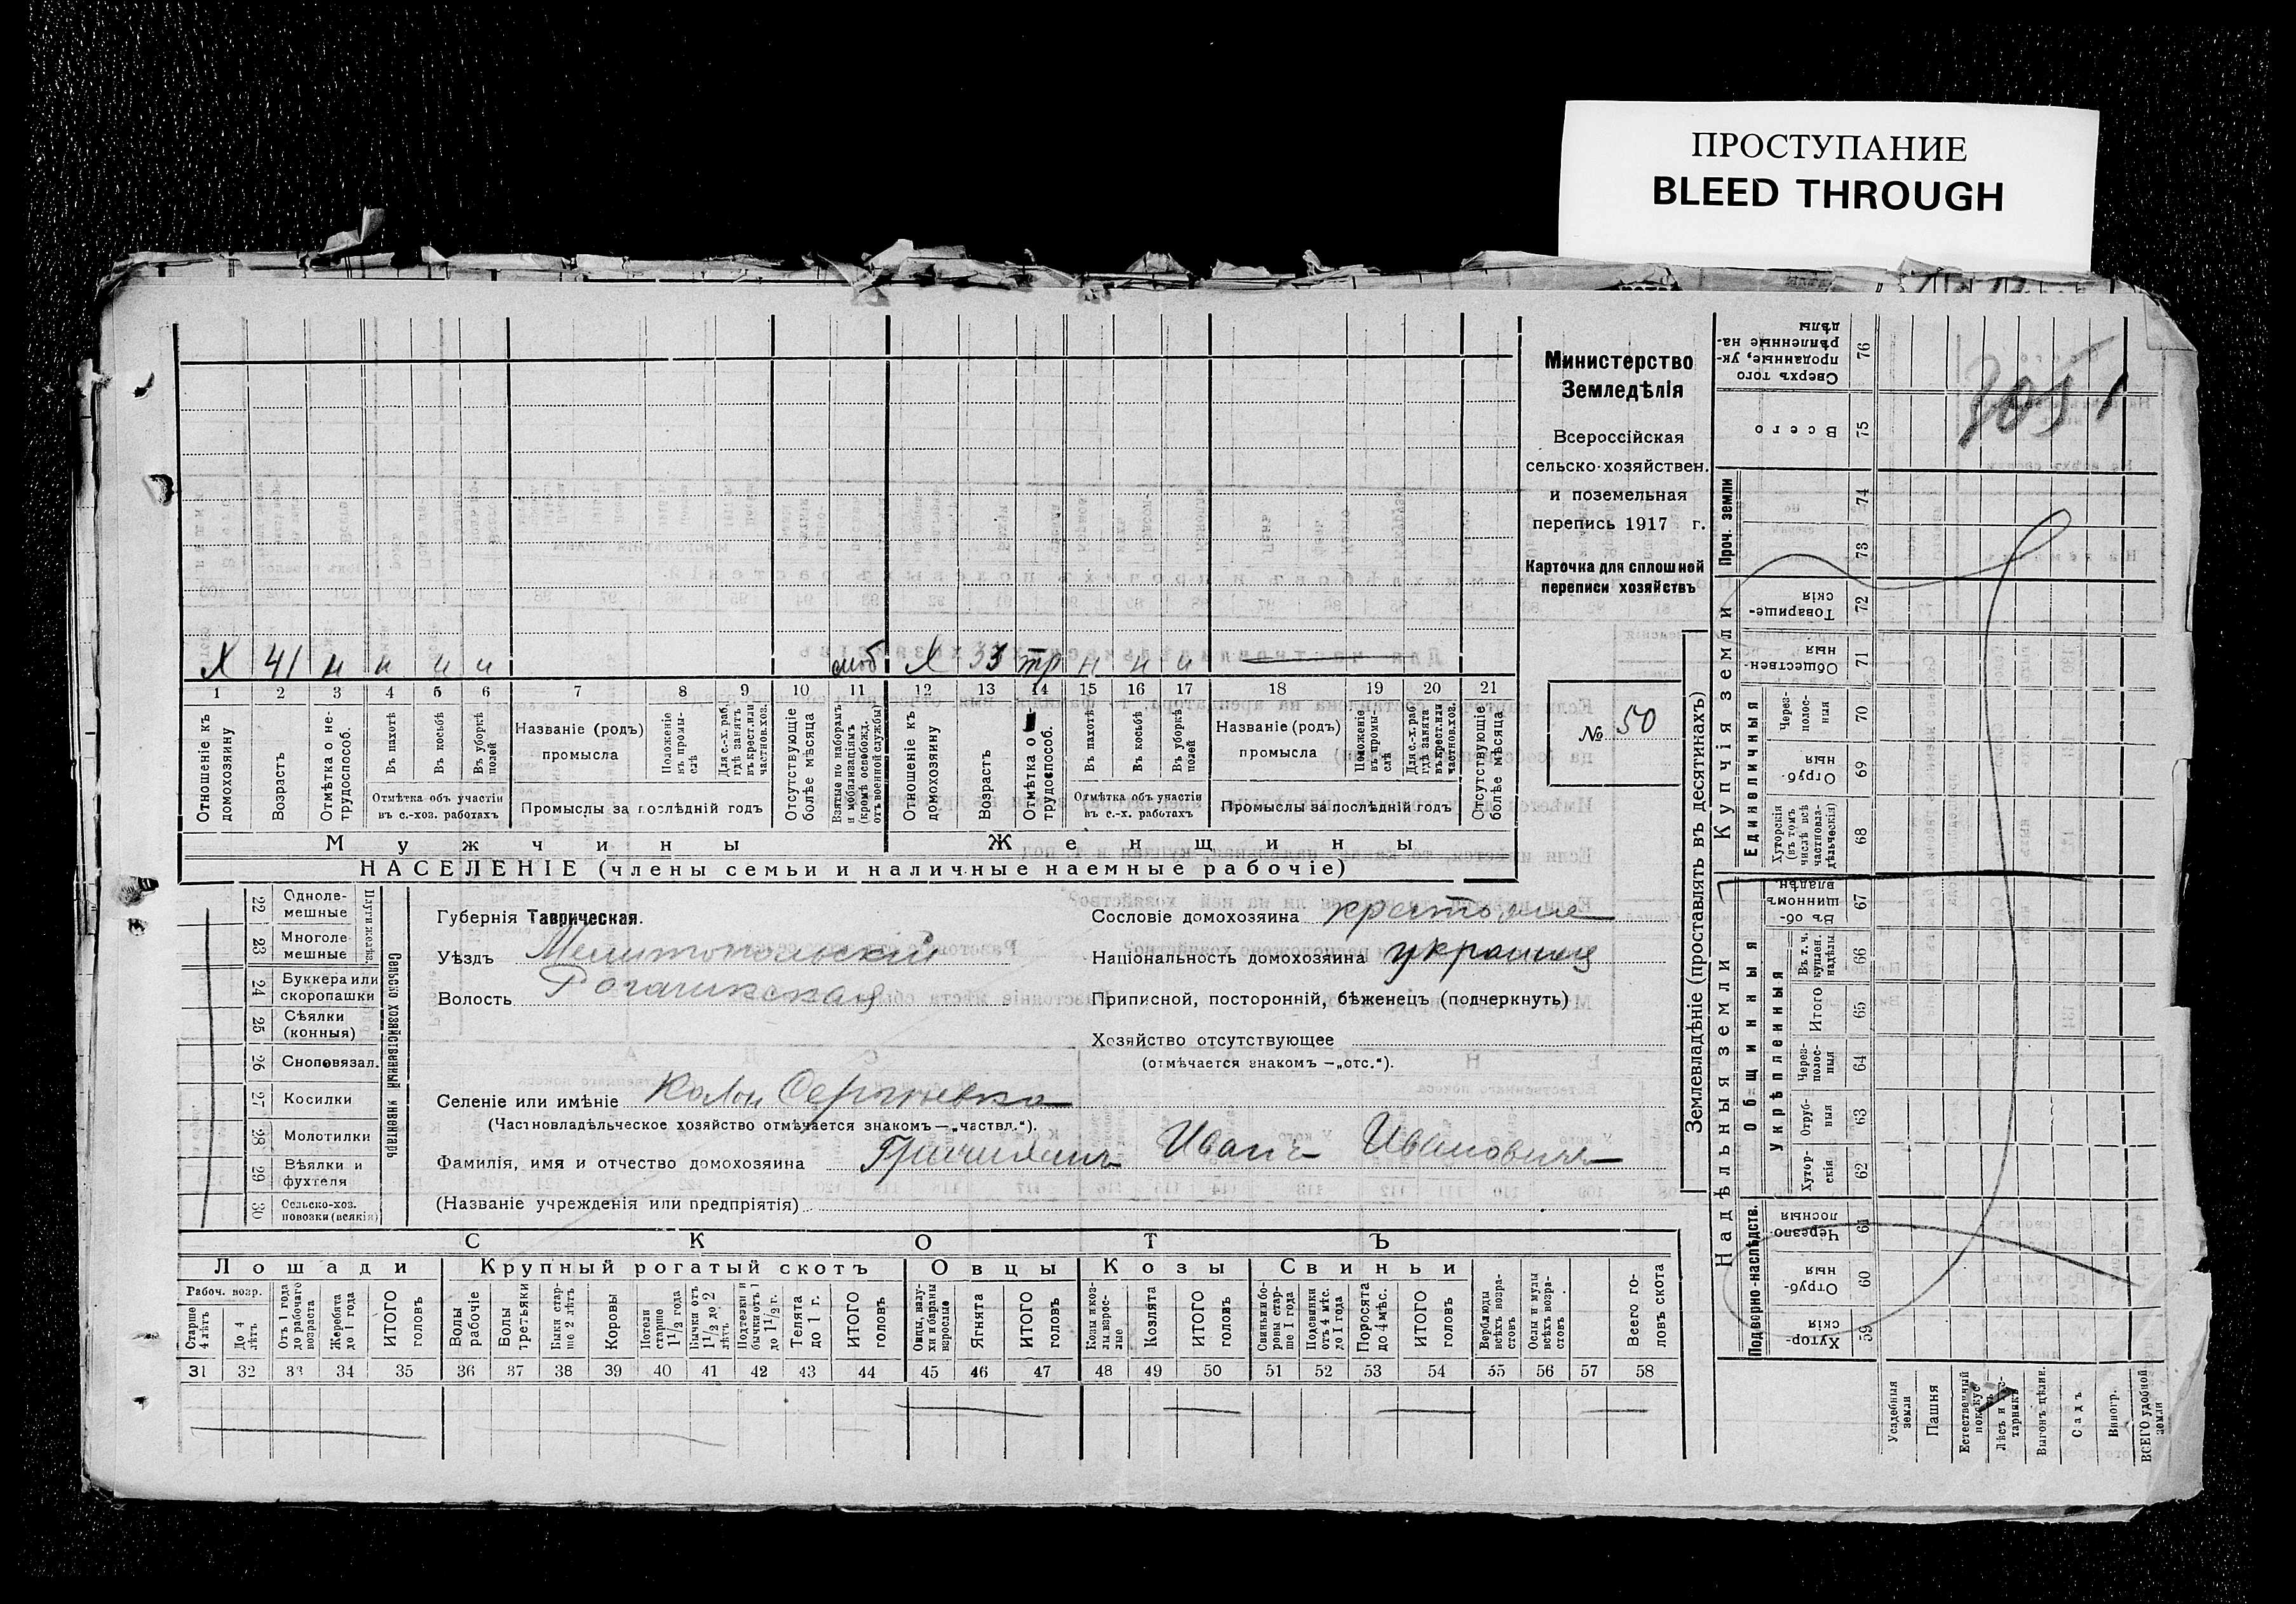 ПРОСТУПАНИЕ
BLEED THROUGH
Министерство
Земледѣлія
Всероссійская
сельско-хозяйствен.
и поземельная
перепись 1917 г.
Карточка для сплошной
переписи хозяйствъ
№ 50
3051
Х 41 н н н н моб Х 33 тр н н н
1 2 3 4 5 6 7 8 9 10 11 12 13 14 15 16 17 18 19 20 21
Отношеніе къ домохозяину
Возрастъ
Отмѣтка о не-трудоспособ.
Въ пахотѣ
Въ косьбѣ
Въ уборкѣ полей
Отмѣтка объ участіи
въ с.-хоз. работахъ
Названіе (родъ)
промысла
Положеніе въ промы-слѣ
Для с.-х. раб., гдѣ занятъ въ крест. или частнов. хоз.
Промыслы за послѣдній годъ
Отсутствующіе болѣе мѣсяца
Взятые по наборамъ и мобилизаціямъ (кромѣ освобожд. отъ военной службы)
Отношеніе къ домохозяину
Возрастъ
Отмѣтка о трудоспособ.
Въ пахотѣ
Въ косьбѣ
Въ уборкѣ полей
Отмѣтка объ участіи
въ с.-х. работахъ
Названіе (родъ)
промысла
Положеніе въ промы-слѣ
Для с.-х. раб. гдѣ занята въ крест. или частнов. хоз.
Промыслы за послѣдній годъ
Отсутствующіе болѣе мѣсяца
Мужчины Женщины
НАСЕЛЕНІЕ (члены семьи и наличные наемные рабочіе)
22 Одноле-мешные
23 Многоле-мешные
Плуги желѣзн.
24 Буккера или скоропашки
25 Сѣялки (конныя)
26 Сноповязал.
27 Косилки
28 Молотилки
29 Вѣялки и фухтеля
30 Сельско-хоз. повозки (всякія)
Сельско хозяйственный инвентарь
Губернія Таврическая.
Уѣздъ Мелитопольскій
Волость Рогачикская
Сословіе домохозяина
Національность домохозяина украинец
Приписной, посторонній, бѣженецъ (подчеркнуть)
Хозяйство отсутствующее
(отмѣчается знакомъ —„отс.“).
Селеніе или имѣніе
(Частновладѣльческое хозяйство отмѣчается знакомъ —„частвл.“).
Фамилія, имя и отчество домохозяина Иванъ Ивановичъ
(Названіе учрежденія или предпріятія)
СКОТЪ
Лошади Крупный рогатый скотъ Овцы Козы Свиньи
Рабоч. возр.
Старше 4 лѣтъ
До 4 лѣтъ
Отъ 1 года до рабочаго возраста
Жеребята до 1 года
ИТОГО головъ
Волы рабочіе
Волы третьяки
Быки стар-ше 2 лѣтъ
Коровы
Нетели старше 1 1/2 года
Бычки отъ 1 1/2 до 2 лѣтъ
Подтелки и бычки отъ 1 до 1 1/2 г.
Телята до 1 г.
ИТОГО головъ
Овцы, валу-хи и бараны взрослые
Ягнята
ИТОГО головъ
Козы и коз-лы взрос-лые
Козлята
ИТОГО головъ
Свиньи и бо-ровы стар-ше 1 года
Подсвинки отъ 4 мѣс. до 1 года
Поросята до 4 мѣс.
ИТОГО головъ
Верблюды всѣхъ возра-стовъ
Ослы и мулы всѣхъ возра-стовъ
Всего го-ловъ скота
31 32 33 34 35 36 37 38 39 40 41 42 43 44 45 46 47 48 49 50 51 52 53 54 55 56 57 58
Землевладѣніе (проставлять въ десятинахъ)
Сверхъ того проданные, ук-рѣпленные на-дѣлы 76
Всего 75
Проч. земли
74
73
Купчія земли
Товарище-скія 72
Обществен-ныя 71
Единоличныя
Через-полос-ныя 70
Отруб-ныя 69
Хуторскія (въ томъ числѣ всѣ частновла-дѣльческія) 68
Надѣльныя земли
Общинныя
Въ об-щинномъ владѣн. 67
Укрѣпленныя
Въ т. ч. куплен. надѣлы 66
Итого 65
Через-полос-ныя 64
Отруб-ныя 63
Хутор-скія 62
Подворно-наслѣдств.
Черезпо-лосныя 61
Отруб-ныя 60
Хутор-скія 59
Усадебныя земли
Пашня
Естественный покосъ
Выгонъ цѣлин.
Садъ
Виногр.
ВСЕГО удобной земли